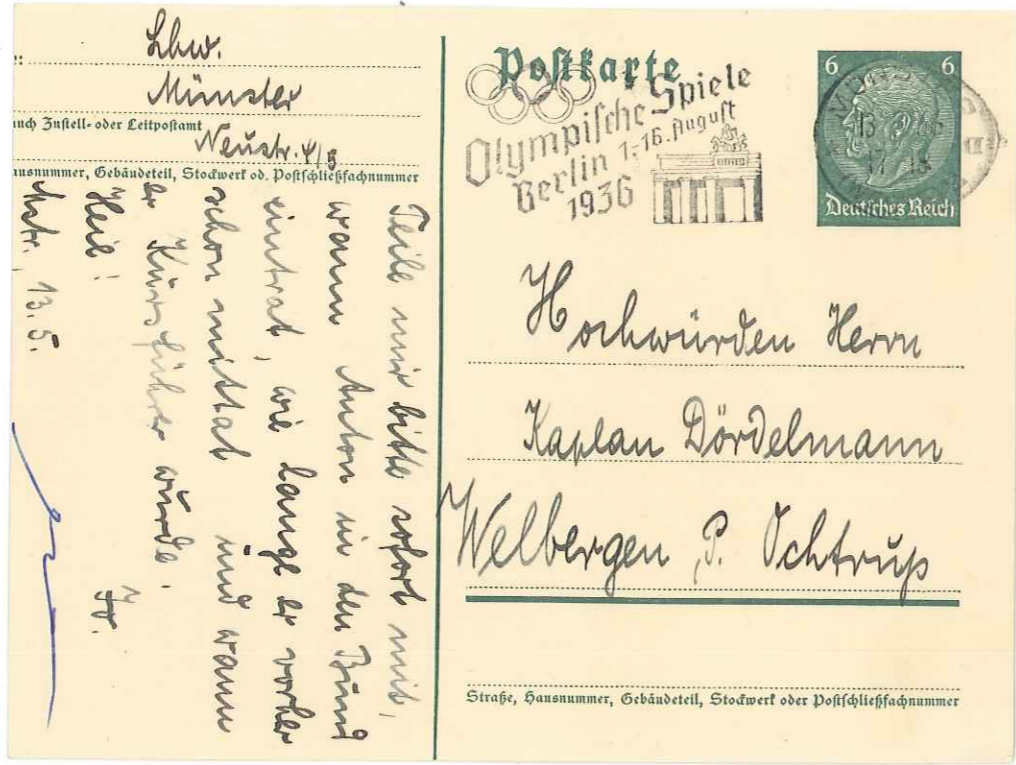 Lbw.
Münster
auch Zustell- oder Leitpostamt
Neustr. 4/5
Hausnummer, Gebäudeteil, Stockwerk od. Postschließfachnummer
Teile mir bitte sofort mit,
wann Anton in den Bund
eintrat, wie lange er vorher
schon mittat und wann
er Kursführer wurde.
Heil! Jg.
Mstr., 13.5.
Postkarte
Olympische Spiele
Berlin 1.-16. August
1936
6 6
13
17
Deutsches Reich
Hochwürden Herrn
Kaplan Dördelmann
Welbergen, P. Ochtrup
Straße, Hausnummer, Gebäudeteil, Stockwerk oder Postschließfachnummer